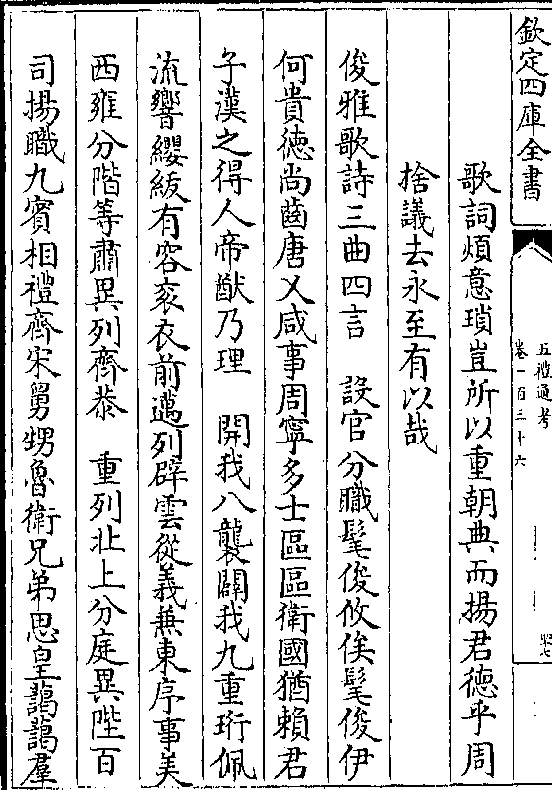 欽定四庫全書
五禮通考
卷一百三十六
歌詞煩意瑣豈所以重朝典而揚君德乎周
捨議去永至有以哉
俊雅歌詩三曲四言　設官分職髦俊攸俟髦俊伊
何貴徳尚齒唐乂咸事周寧多士區區衛國猶賴君
子漢之得人帝猷乃理　開我八襲闢我九重珩佩
流響纓紱有容衮衣前邁列辟雲從義兼東序事美
西雍分階等肅異列齊恭　重列北上分庭異陛百
司揚職九賓相禮齊宋舅甥魯衛兄弟思皇藹藹羣